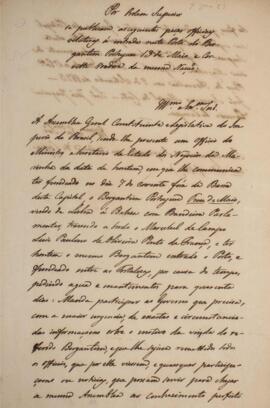 Por Ordem Superior
se publicão as seguintes peças officiaes
relativas á entrada neste Porto do Ber-
gantim Portuguez 13 de Maio, e Cor-
veta Voadora da mesma Nação.
Illmo e Exmo Snr.
A Assembléa Geral Constituinte e Legislativa do Im-
perio do Brasil, sendo lhe presente um Officio do
Ministro e Secretario de Estado dos Negocios da Ma-
rinha da data de hontem em que lhe communica
ter fundeado no dia 7 do corrente fora da Barra
desta Capital, o Bergantim Portuguez Treze de Maio,
vindo de Lisboa á Bahia com Bandeira Parla-
mentar, trazendo a bordo o Marechal de Campo
Luiz Paulino de Oliveira Pinto da França, e ter
hontem o mesmo Bergantim entrado o Porto, e
fundeado entre as Fortalezas, por causa do tempo,
pedindo agua e mantimentos para quarenta
dias: Manda participar ao Governo que precisa,
com a maior urgencia, de exactas e circunstancia-
das informaçoens sobre o motivo da vinda do re-
ferido Bergantim, e que lhe sejão remettidos todos
os officios, que por elle vierem, e quaesquer participa-
çoens ou noticias, que possam servir para chegar
a mesma Assembléa ao conhecimento perfeito